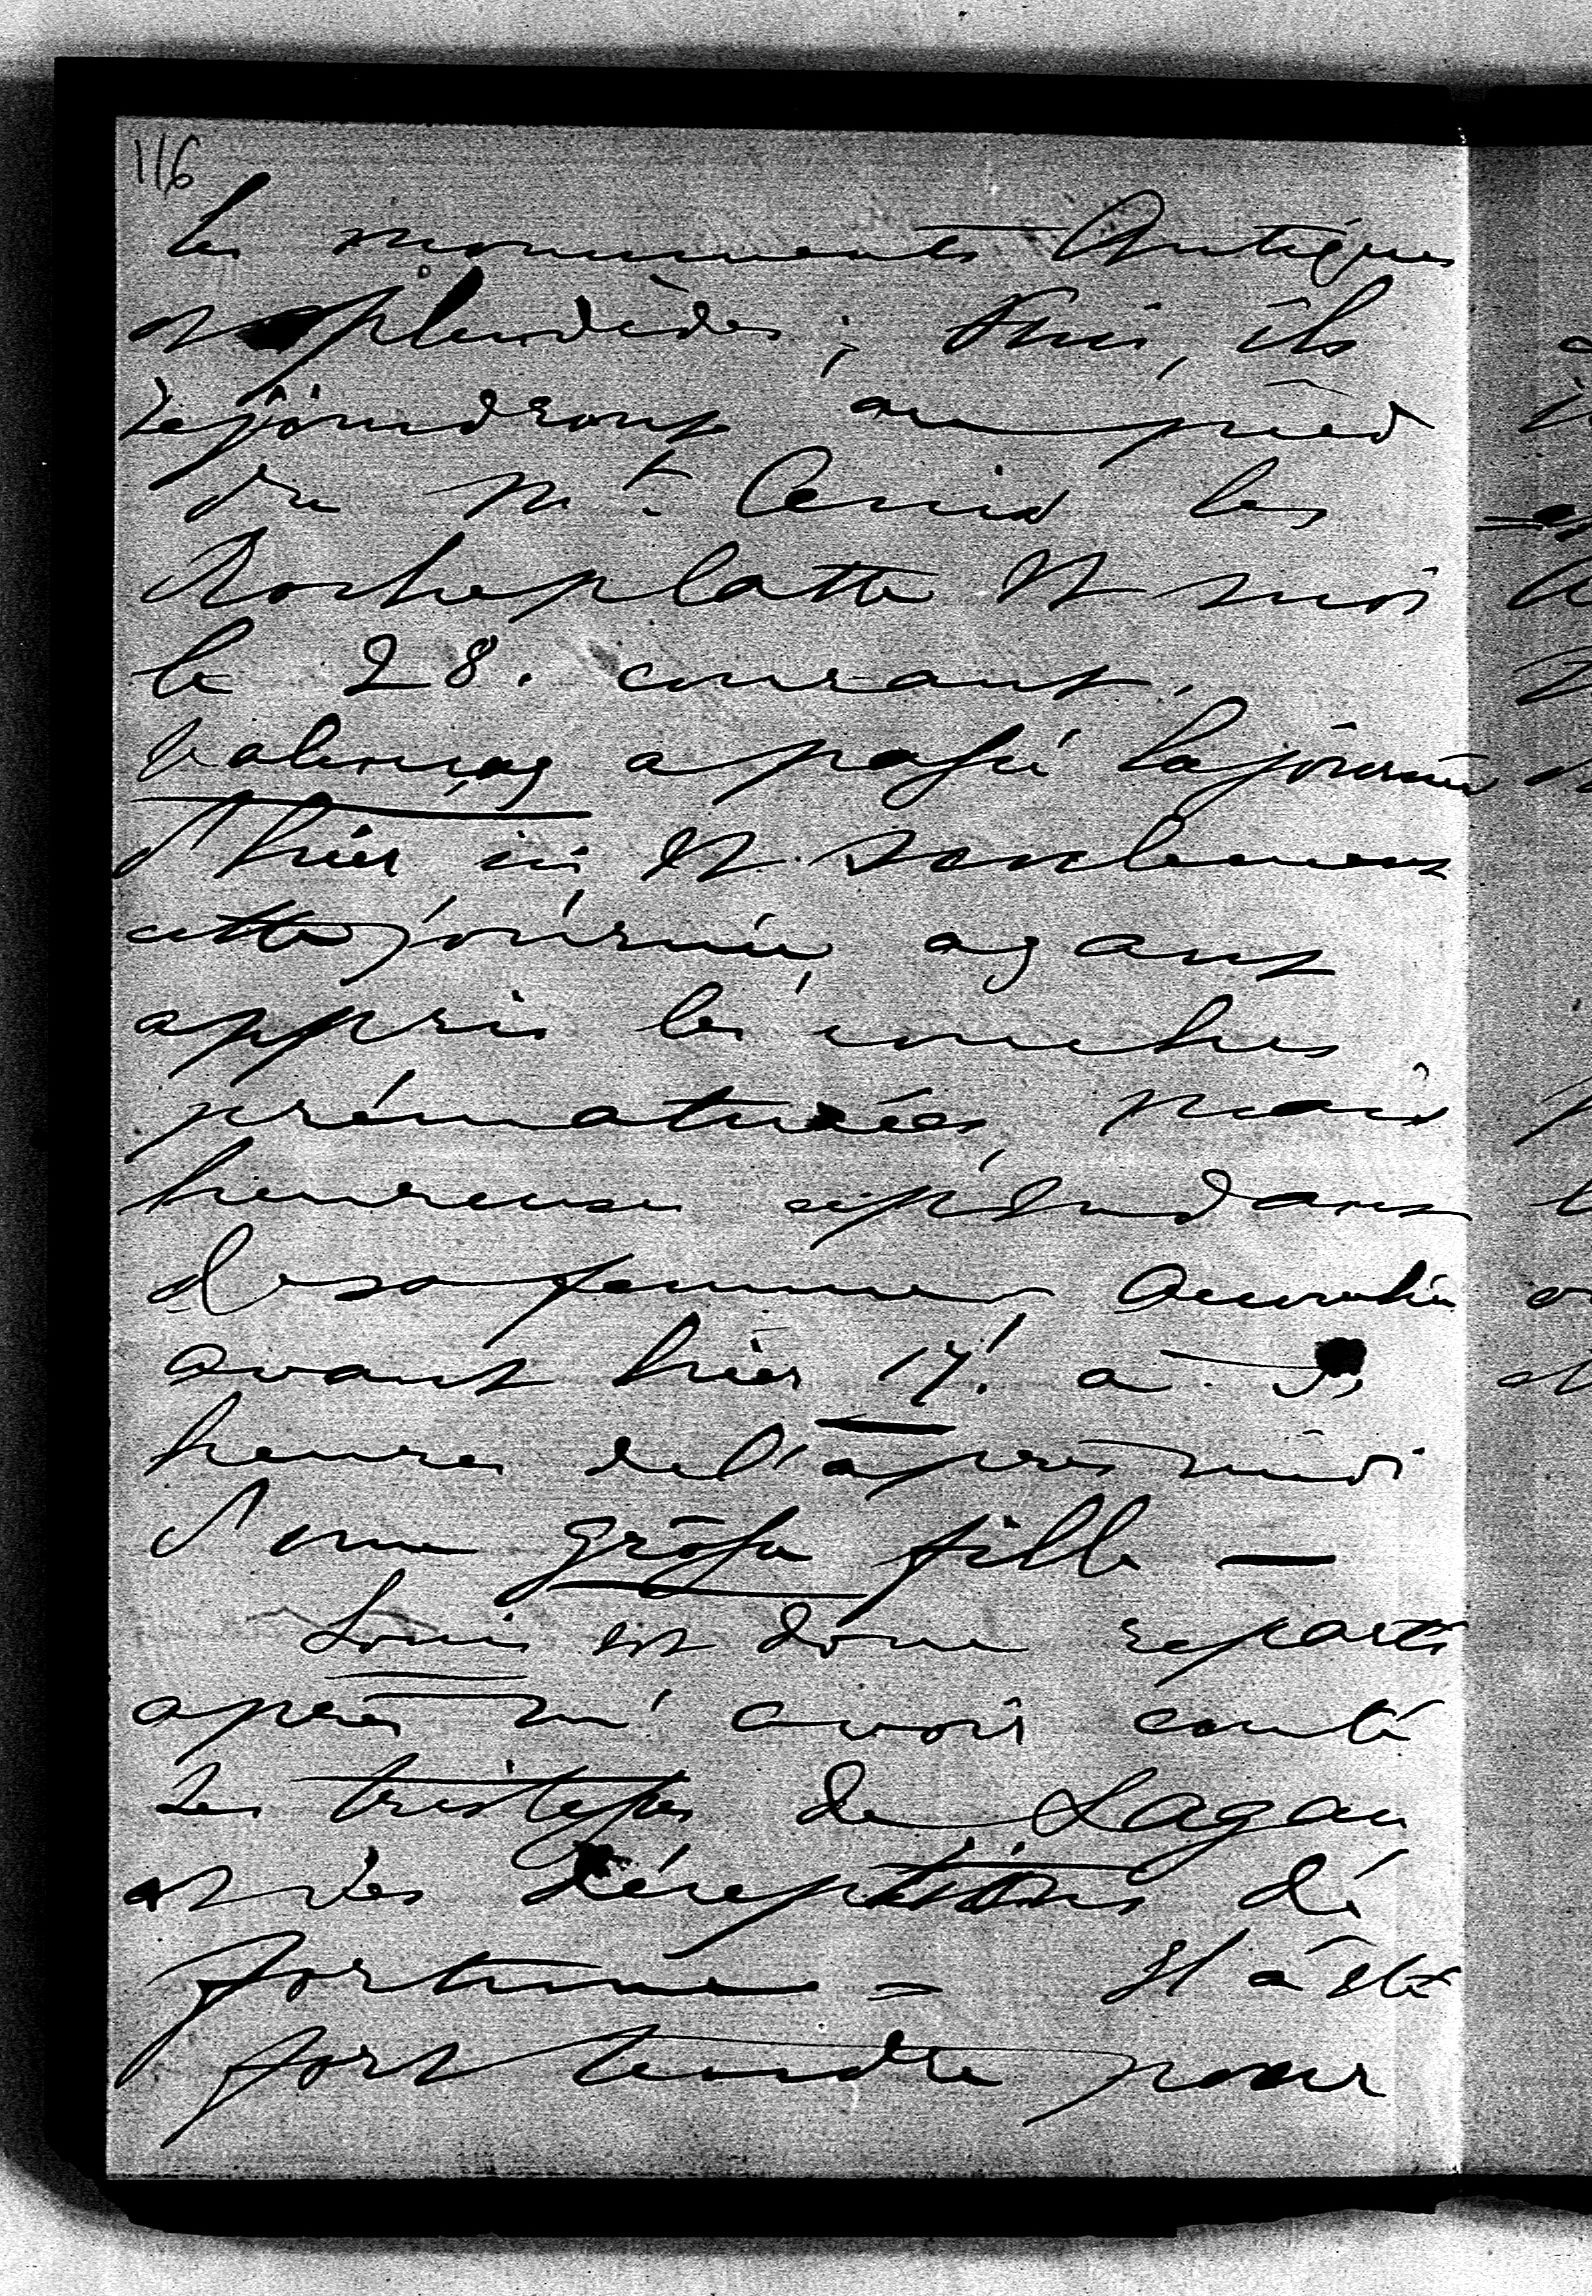 116
les monuments Antiques
et splendides ; Puis, ils
rejoindront au pied
du Mt. Cenis les
Rocheplatte et moi
le 28. courant.
Valençay a passé la journée
d'hier ici et seulement
cette journée, ayant
appris les couches
prématurées, mais
heureuses cependant
de sa femme accouchée
avant hier 17! à
heures de l'après midi
d'une grosse fille —
Louis est donc reparti
après m'avoir conté
ses tristesses de Sagan
et ses déceptions de
fortune = Il a été
fort tendre pour